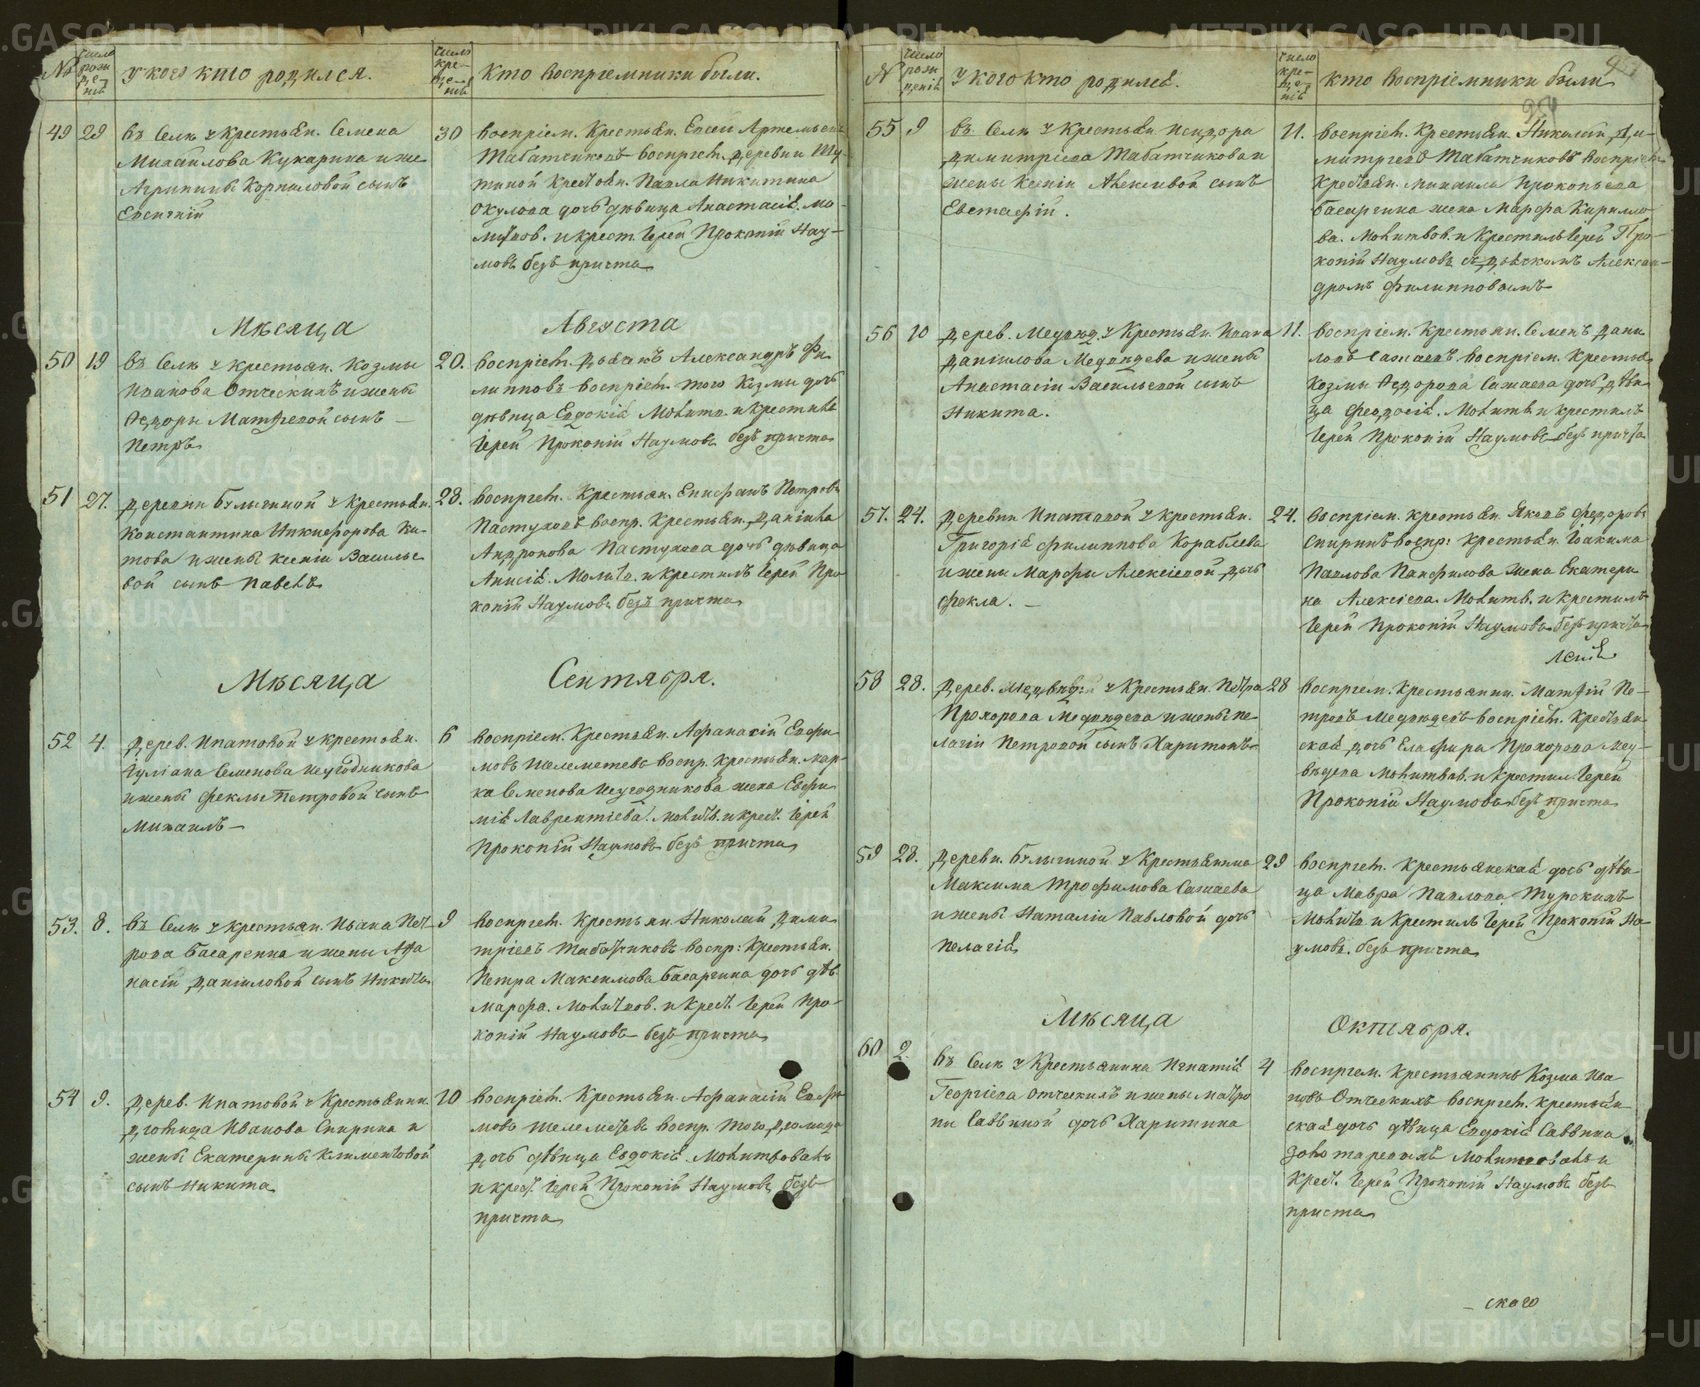 №
число рожденiя
У кого кто родился.
число крещенiя
Кто воспрiемники были.
49 29 въ Селѣ у Крестьян. Семена
Михаилова Кукарина и же
Агрипины Корниловой сынъ
30 воспрiем. Крестьян. Елисей Артемьевъ
Табатчиковъ воспрiем. деревни
Крестьян. Павла Никитина
Окулова дочь дѣвица Анастасiя. Мо-
литвов. и крест. Iерей Прокопiй Нау-
мовъ безъ причта
Мѣсяца Августа
50 19 въ Селѣ у крестьян. Козмы
Иванова Отческихъ и жены
Ѳедоры Матѳеевой сынъ —
Петръ
20. воспрiем. Дьячокъ Александръ Фи
липповъ воспрiем. того Козмы дочь
дѣвица Евдокiя Молитв. и крестилъ
Iерей Прокопiй Наумовъ безъ причта
51 27. деревни Булычиной у Крестьян.
Константина Никифорова Ки-
това и жены Ксенiи Василье
вой сынъ Павелъ
28. воспрiем. Крестьян. Епифанъ Петровъ
Пастуховъ воспр. Крестьян. Данiила
Андронова Пастухова дочь дѣвица
Анисiя. Молитв. и крестилъ Iерей Про
копiй Наумовъ безъ причта
Мѣсяца Сентября.
52 4. дерев. Ипатовой у крестьян.
Iулiана Семенова Неугодникова
и жены Феклы Петровой сынъ
Михаилъ —
6 воспрiем. Крестьян. Афанасiй Евфи-
мовъ Шелеметевъ воспр. Крестьян. Мар-
ка Семенова Неугодникова жена Евфи
мiя Лаврентiева. Молитв. и крест. Iерей
Прокопiй Наумовъ безъ причта
53. 8. въ Селѣ у крестьян. Ивана Пет-
рова Басаргина и жены Афа
насiи Данiиловой сынъ Никита
9 воспрiем. Крестьян. Николай Дими
трiевъ Табатчиковъ воспр: Крестьян.
Петра Максимова Басаргина дочь дѣв.
Марфа. Молитвов. и Крест. Iерей Про-
копiй Наумовъ безъ причта
54 9. дерев. Ипатовой у Крестьянин.
Дiомида Иванова Спирина и
жены Екатерины Климентовой
сынъ Никита
10 воспрiем. Крестьян. Афанасiй Евфи
мовъ Шелеметевъ воспр. того Дiомида
дочь дѣвица Евдокiя. Молитвовалъ
и крест. Iерей Прокопiй Наумовъ безъ
причта
№
число рожденiй
У кого кто родился.
число крещенiй
кто воспрiемники были
55 9 въ Селѣ у Крестьян Исидора
Димитрiева Табатчикова и
жены Ксенiи Алексiевой сынъ
Евстафiй.
11. воспрiем. Крестьян. Николай Ди-
митрiевъ Табатчиковъ воспрiем
Крестьян. Михаила Прокопьева
Басаргина жена Марфа Кирилло
ва. Молитвов. и Крестилъ Iерей Про-
копiй Наумовъ съ дьячкомъ Алексан-
дромъ Филипповымъ
56 10 дерев. Медвѣд. у Крестьян. Ивана
Данiилова Медвѣдева и жены
Анастасiи Васильевой сынъ
Никита.
11. воспрiем. Крестьян. Семенъ Дани
ловъ Сажаевъ воспрiем. Крестья.
Козмы Ѳедорова Сажаева дочь дѣви
ца Феодосiя. Молитв. и крестилъ
Iерей Прокопiй Наумовъ безъ причта
57. 24. деревни Ипатовой у крестьян.
Григорiя Филиппова Кораблева
и жены Марфы Алексiевой дочь
Фекла. —
24. воспрiем. крестьян. Яковъ Федоровъ
Спиринъ воспр: Крестьян. Iоакима
Павлова Панфилова жена Екатери
на Алексiева. Молитв. и крестилъ
Iерей Прокопiй Наумовъ безъ причта
58 28. дерев. Медвѣд. у Крестьян. Петра
Прохорова Медвѣдева и жены Пе
лагiи Петровой сынъ Харитонъ
28 воспрiем. Крестьянин. Матфiй Пе-
тровъ Медвѣдевъ воспрiем. Крестьян
ская дочь Елафира Прохорова Мед-
вѣдева Молитвов. и крестил Iерей
Прокопiй Наумовъ безъ причта
59 28. деревн. Булычиной у Крестьянина
Максима Трофимова Сажаева
и жены Наталiи Павловой дочь
Пелагiя
29 воспрiем. Крестьянская дочь дѣви
ца Мавра Павлова Турскихъ
Молитв. и Крестилъ Iерей Прокопiй На-
умовъ. безъ причта
Мѣсяца Октября.
60 2. въ Селѣ у Крестьянина Игнатiя
Георгiева Отческихъ и жены Матро
ны Саввиной дочь Харитина
4 воспрiем. Крестьянинъ Козма Ива
новъ Отческихъ воспрiем. крестьян
ская дочь дѣвица Евдокiя Саввина
Золотаревыхъ Молитвовалъ и
Крест. Iерей Прокопiй Наумовъ безъ
причта
— скаго
METRIKI.GASO-URAL.RU